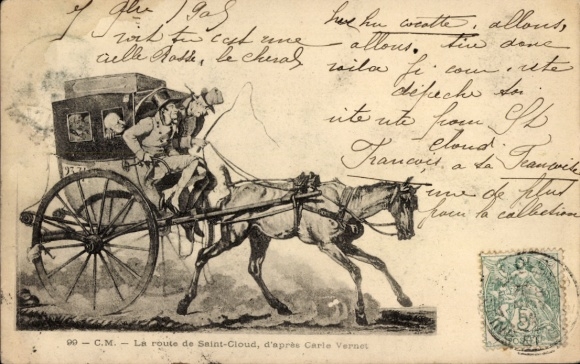 vois tu c'est une
vielle Rosse, le cheval
hu hu cocotte. allons,
allons, tire donc
voila fi cour. vite
dépeche toi
vite vite pour St
Cloud
François a sa Françoise
une de plus
pour ta collection
2733
99 - C.M. - La route de Saint-Cloud, d'après Carle Vernet
5